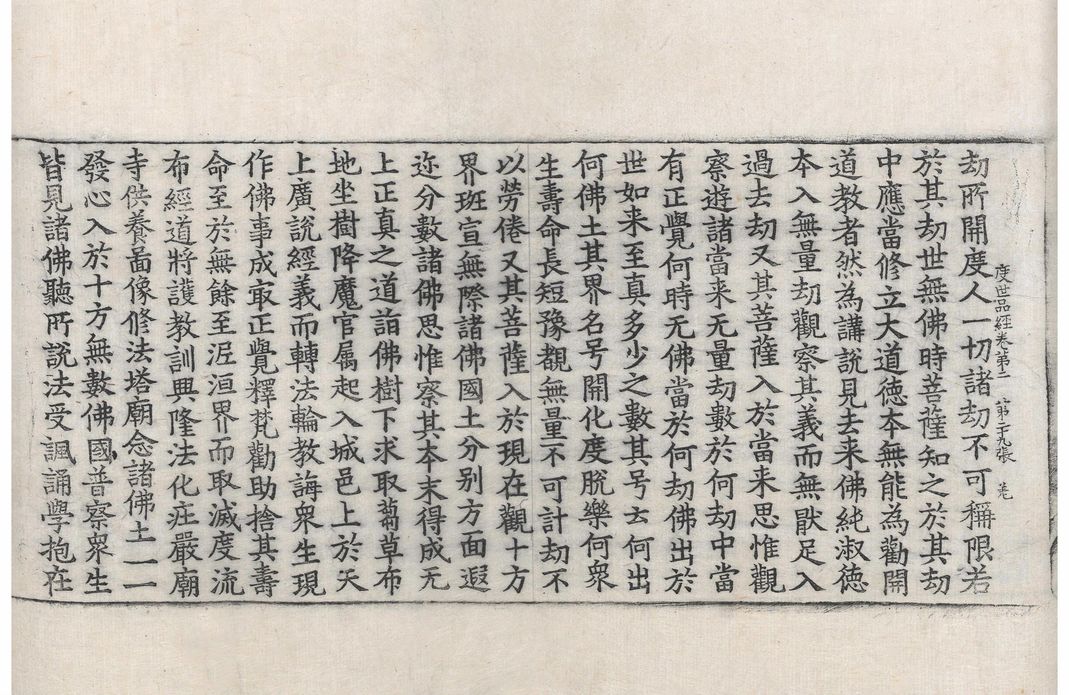 度世品經卷第二 第二十九張
劫所開度人一切諸劫不可稱限若
於其劫世無佛時菩薩知之於其劫
中應當修立大道徳本無能為勸開
道教者然為講說見去来佛純淑徳
本入無量劫觀察其義而無猒足入
過去劫又其菩薩入於當来思惟觀
察遊諸當来无量劫數於何劫中當
有正覺何時无佛當於何劫佛出於
世如来至真多少之數其号云何出
何佛土其界名号開化度脫樂何衆
生壽命長短豫覩無量不可計劫不
以勞倦又其菩薩入於現在觀十方
界班宣無際諸佛國土分别方面遐
迩分數諸佛思惟察其本末得成无
上正真之道詣佛樹下求取蒭草布
地坐樹降魔官属起入城邑上於天
上廣說經義而轉法輪教誨衆生現
作佛事成㝡正覺釋梵勸助捨其壽
命至於無餘至泥洹界而取滅度流
布經道將護教訓興隆法化庄嚴廟
寺供養啚像修法塔廟念諸佛土一一
發心入於十方無數佛國普察衆生
皆見諸佛聽所說法受諷誦學抱在